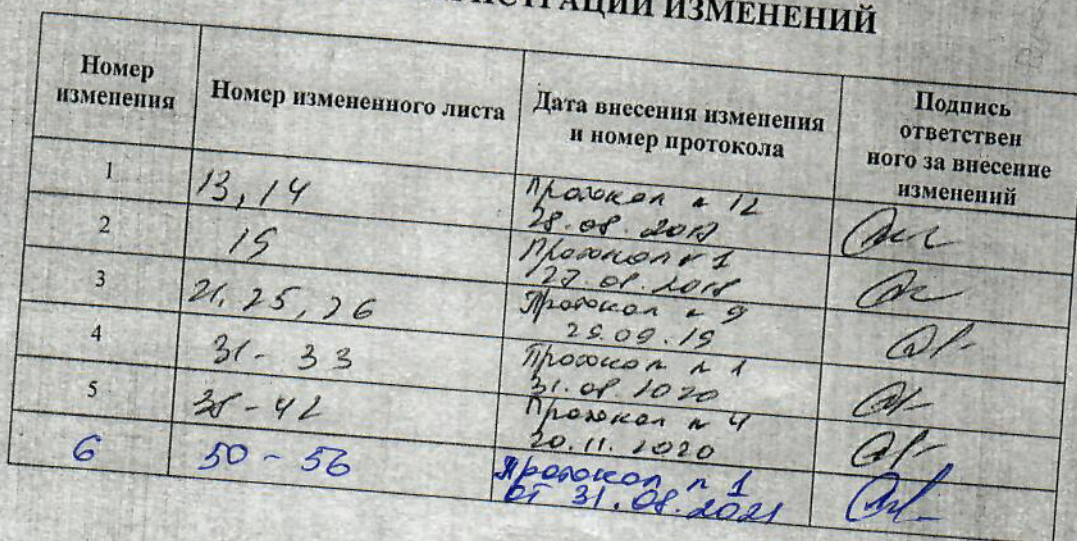 ИЗМЕНЕНИЙ
Номер изменения
Номер измененного листа
Дата внесения изменения и номер протокола
Подпись ответствен ного за внесение изменений
1
13, 14
Протокол № 12
28.08.2017
2
15
Протокол № 1
27.08.2018
3
21, 25, 26
Протокол № 9
29.09.19
4
31 - 33
Протокол № 1
31.08.2020
5
38 - 42
Протокол № 4
20.11.2020
6
50 - 56
Протокол № 1
от 31.08.2021